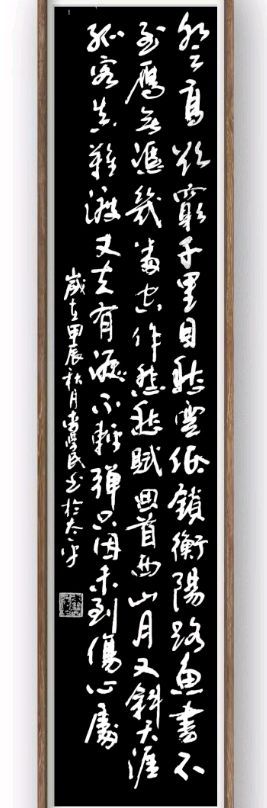 登高欲窮千里目愁雲低鎖衡陽路魚書不
至雁無憑幾番空作悲愁賦回首西山月又斜天涯
孤客真難渡丈夫有淚不輕彈只因未到傷心處
歲在甲辰秋月學民书於太平